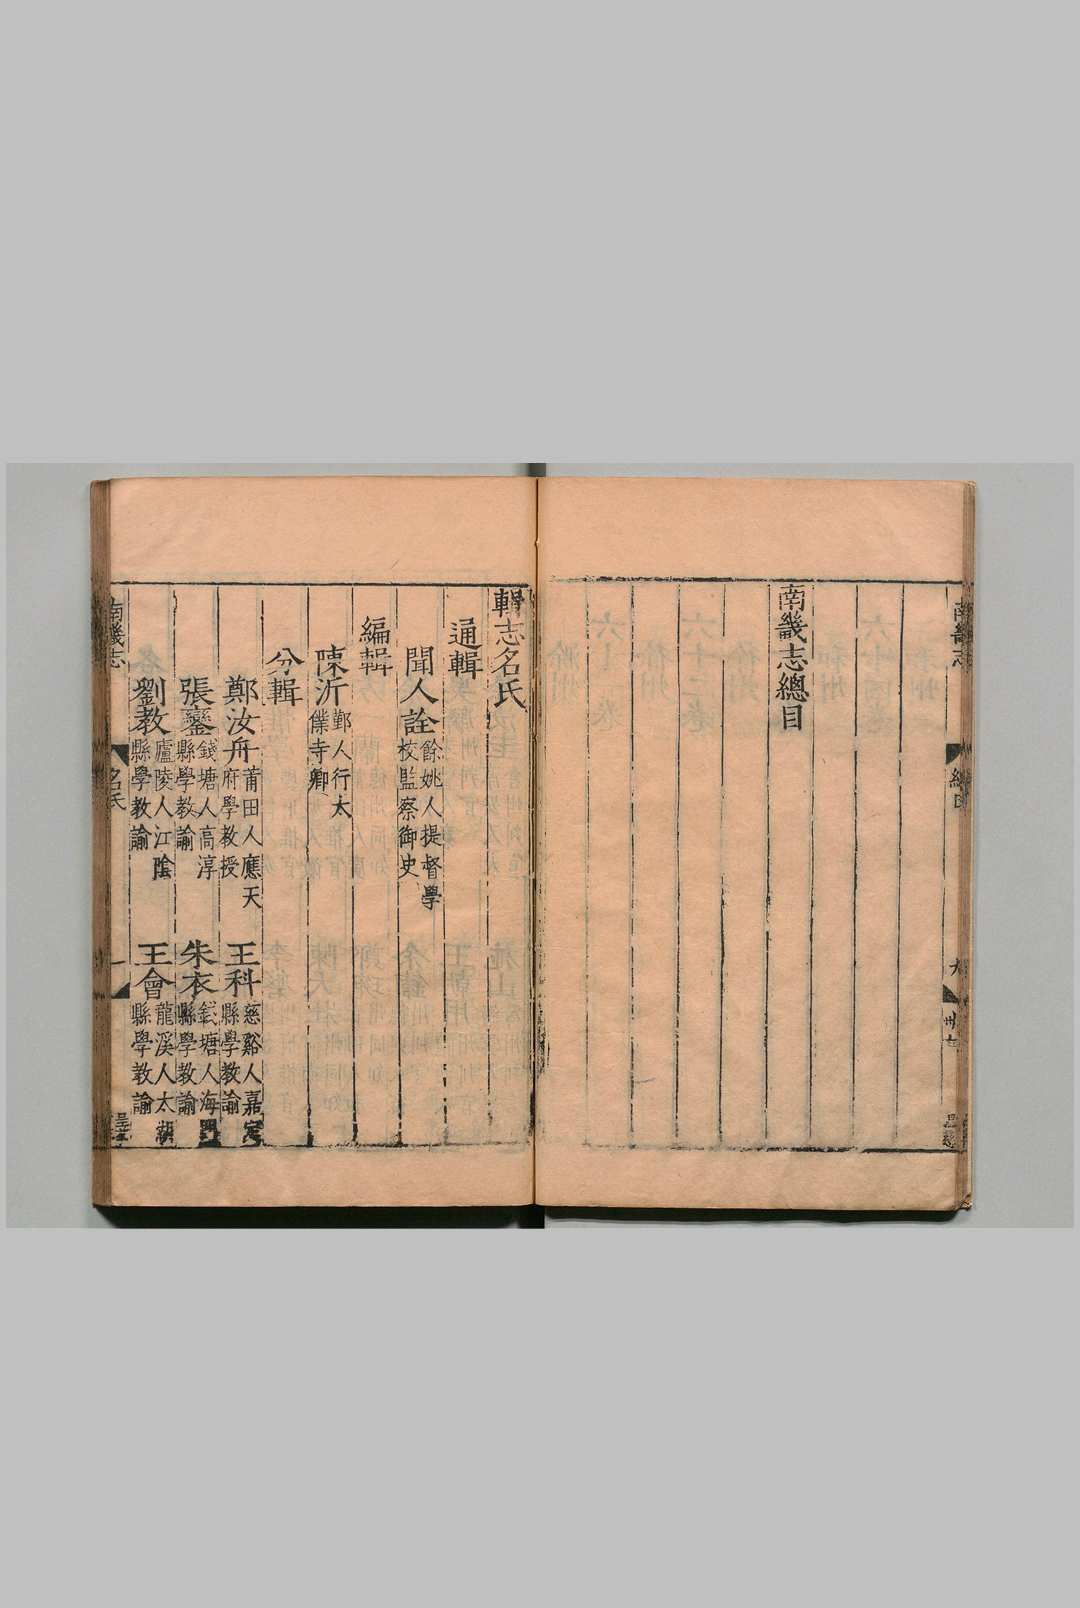 南畿志
總目
南畿志總目
輯志名氏
通輯
聞人詮 餘姚人提督學
校監察御史
編輯
陳沂 鄞人行太
僕寺卿
分輯
鄭汝舟 莆田人應天
府學教授
王科 慈谿人嘉定
縣學教諭
張鑾 錢塘人高淳
縣學教諭
朱衣 錢塘人海門
縣學教諭
劉教 廬陵人江陰
縣學教諭
王會 龍溪人太湖
縣學教諭
南畿志
名氏
一